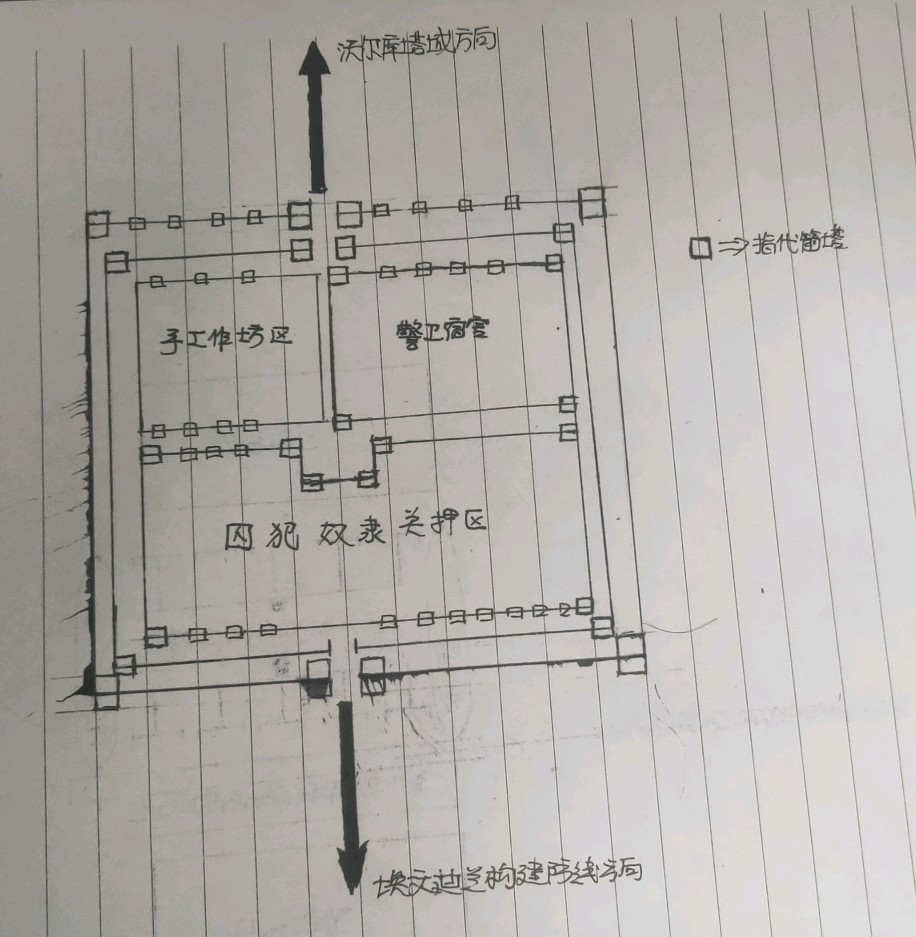 沃尔库塔城方向
⇒指代箭塔
手工作坊区
警卫宿舍
囚犯奴隶关押区
埃文迪兰构建防线方向